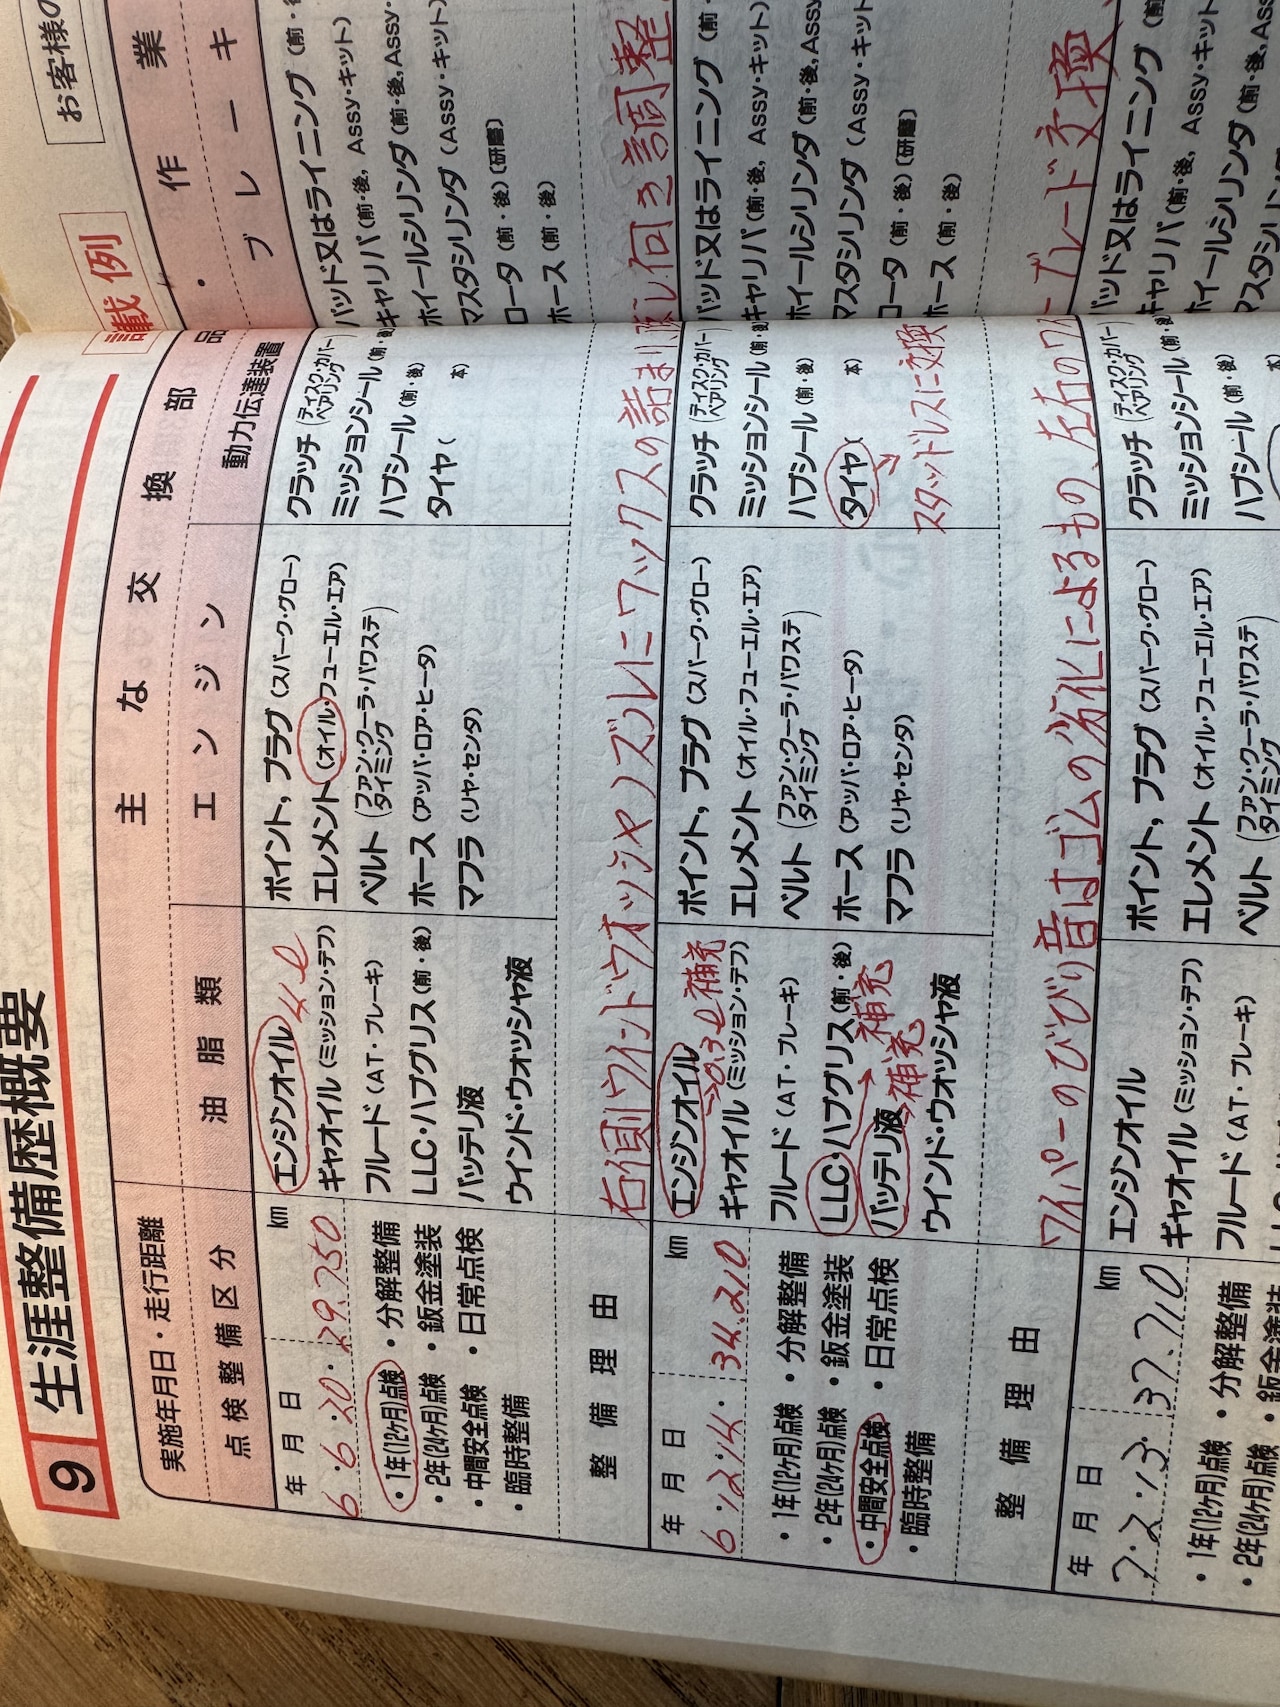 お客様の
9 生涯整備歴概要
記載例
実施年月日・走行距離
点検整備区分
主な交換部品・作業
油脂類
エンジン
動力伝達装置
ブレーキ
年月日 km
6・6・20・29.750
・1年(12ケ月)点検 ・分解整備
・2年(24ケ月)点検 ・鈑金塗装
・中間安全点検 ・日常点検
・臨時整備
エンジンオイル 4ℓ
ギヤオイル(ミッション・デフ)
フルード(AT・ブレーキ)
LLC・ハブグリス(前・後)
バッテリ液
ウインド・ウオッシャ液
ポイント,プラグ(スパーク・グロー)
エレメント(オイル・フューエル・エア)
ベルト(ファン・クーラ・パワステ
タイミング)
ホース(アッパ・ロア・ヒータ)
マフラ(リヤ・センタ)
クラッチ(ディスク・カバー
ベアリング)
ミッションシール(前・後)
ハブシール(前・後)
タイヤ( 本)
パッド又はライニング(前・
キャリパ(前・後,Assy・キット)
ホイールシリンダ(前・後,Assy・
マスタシリンダ(Assy・キット)
ロータ(前・後)(研磨)
ホース(前・後)
整備理由
右側ウインドウオッシャノズルにワックスの詰まり 向き調整
年月日 km
6・12・14・34.210
・1年(12ケ月)点検 ・分解整備
・2年(24ケ月)点検 ・鈑金塗装
・中間安全点検 ・日常点検
・臨時整備
エンジンオイル
→0.3ℓ補充
ギヤオイル(ミッション・デフ)
フルード(AT・ブレーキ)
LLC・ハブグリス(前・後)
→補充
バッテリ液
→補充
ウインド・ウオッシャ液
ポイント,プラグ(スパーク・グロー)
エレメント(オイル・フューエル・エア)
ベルト(ファン・クーラ・パワステ
タイミング)
ホース(アッパ・ロア・ヒータ)
マフラ(リヤ・センタ)
クラッチ(ディスク・カバー
ベアリング)
ミッションシール(前・後)
ハブシール(前・後)
タイヤ( 本)
→スタッドレスに交換
パッド又はライニング(前・
キャリパ(前・後,Assy・キット)
ホイールシリンダ(前・後,Assy
マスタシリンダ(Assy・キット
ロータ(前・後)(研磨)
ホース(前・後)
整備理由
ワイパーのびびり音はゴムの劣化によるもの、左右のワイパーブレード交換
年月日 km
7・2・13・37.710
・1年(12ケ月)点検 ・分解整備
・2年(24ケ月)点検 ・鈑金塗装
エンジンオイル
ギヤオイル(ミッション・デフ)
フルード(AT・ブレーキ)
ポイント,プラグ(スパーク・グロー)
エレメント(オイル・フューエル・エア)
ベルト(ファン・クーラ・パワステ
タイミング)
クラッチ(ディスク・カバー
ベアリング)
ミッションシール(前・後)
ハブシール(前・後)
パッド又はライニング(前
キャリパ(前・後,Assy・キット
ホイールシリンダ(前・後,Ass
マスタシリンダ(Assy・